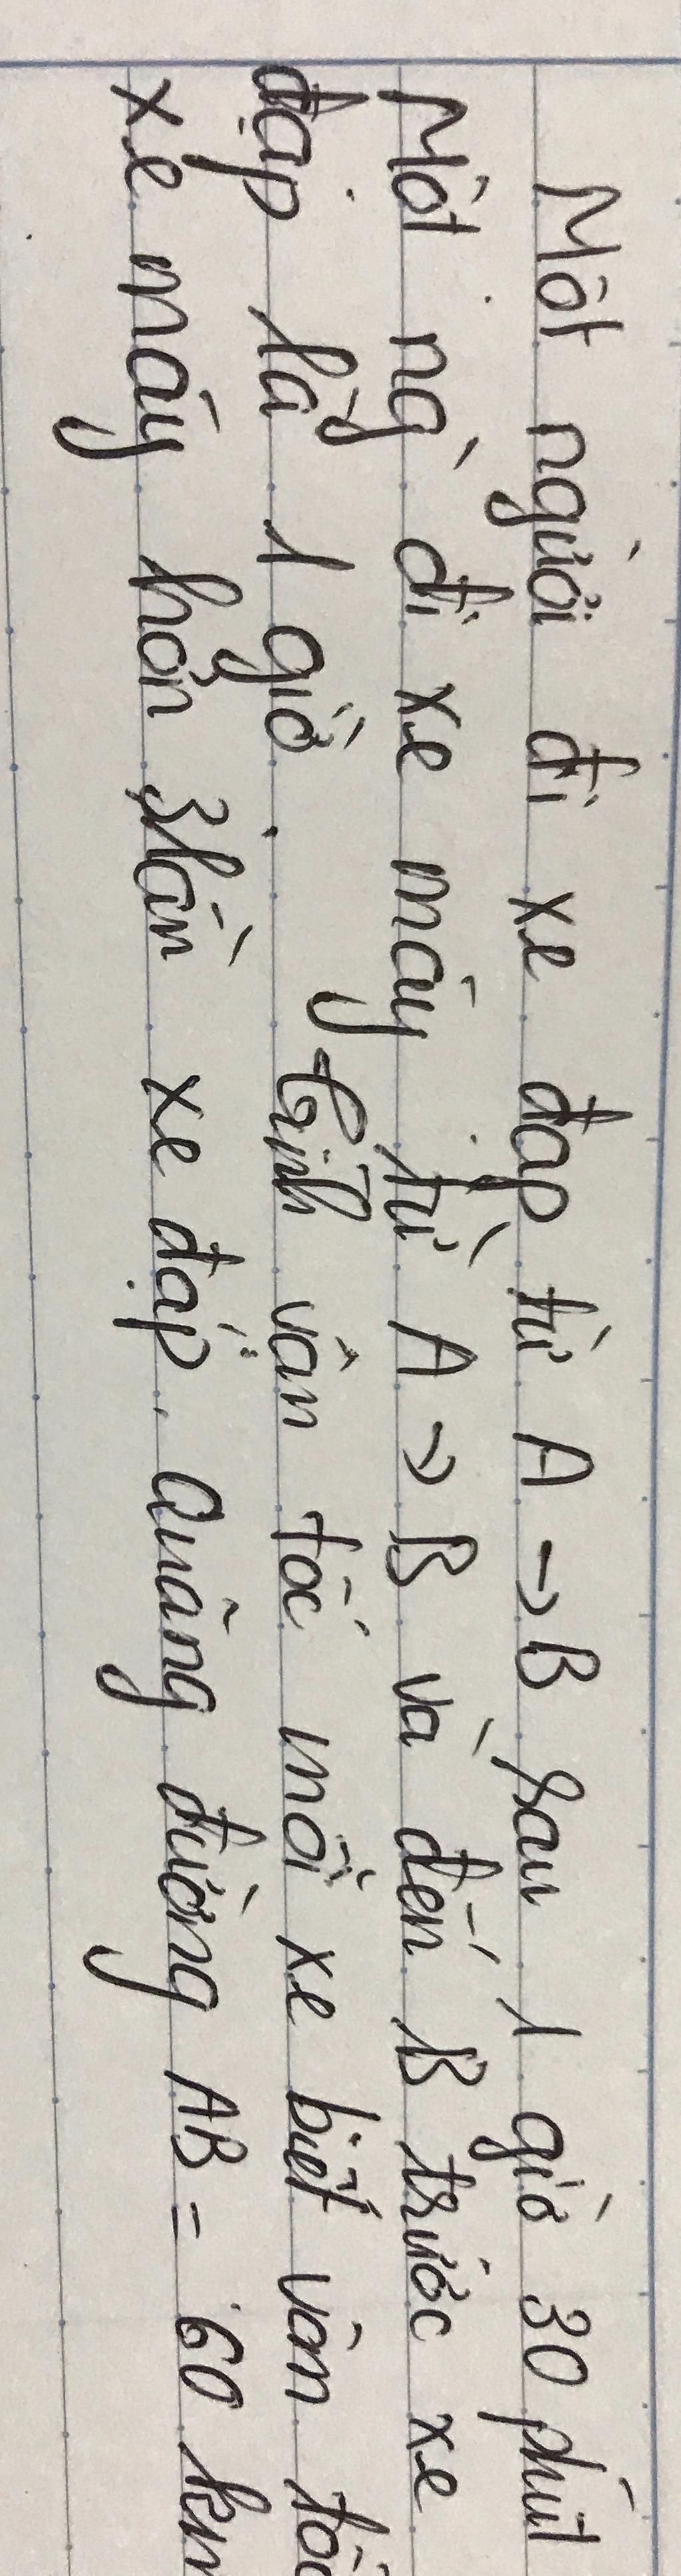 Một người đi xe đạp từ A → B sau 1 giờ 30 phút
Một ng` đi xe máy từ A → B và đến B trước xe
đạp là 1 giờ. Tính vân tốc mỗi xe biết vân tốc
xe máy hơn 3 lần xe đạp. Quãng đường AB = 60 km